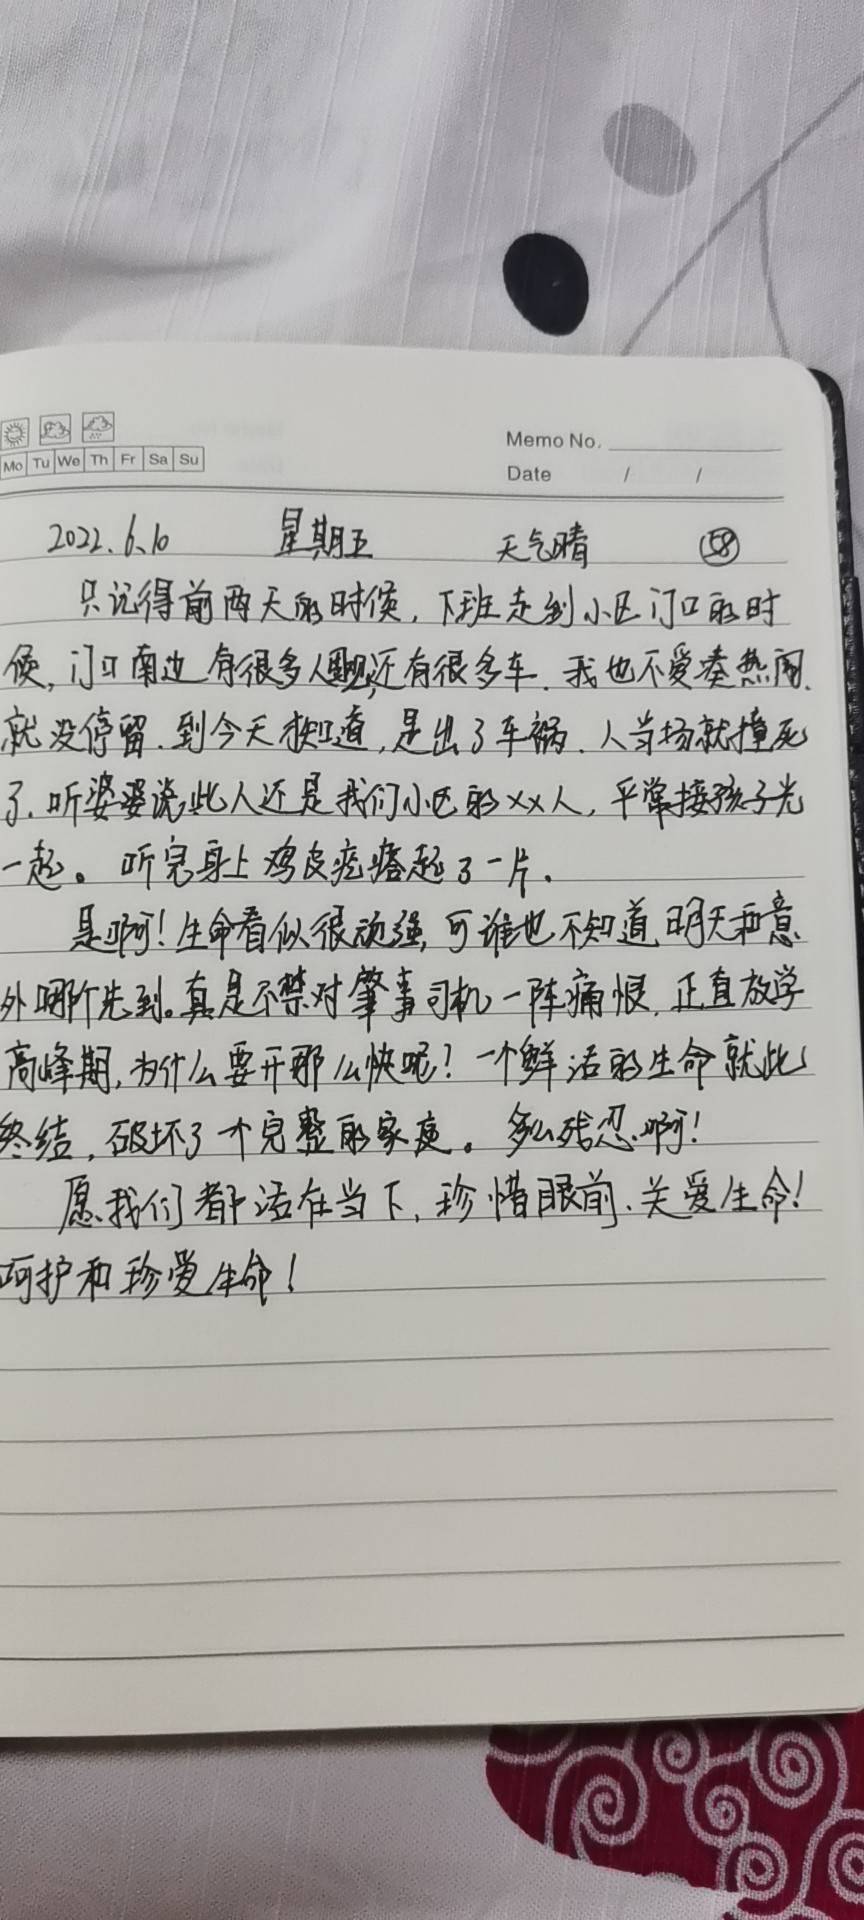 Memo No.
Mo Tu We Th Fr Sa Su
Date / /
2022.6.10 星期五 天气晴 58
只记得前两天的时候，下班走到小区门口的时
候，门口南边有很多人围观，还有很多车．我也不爱凑热闹．
就没停留．到今天才知道，是出了车祸．人当场就撞死
了．听婆婆说此人还是我们小区的××人，平常接孩子光
一起。听完身上鸡皮疙瘩起了一片．
是啊！生命看似很顽强，可谁也不知道明天和意
外哪个先到。真是不禁对肇事司机一阵痛恨．正直放学
高峰期，为什么要开那么快呢？一个鲜活的生命就此
终结，破坏了一个完整的家庭。多么残忍啊！
愿我们都活在当下，珍惜眼前．关爱生命！
呵护和珍爱生命！